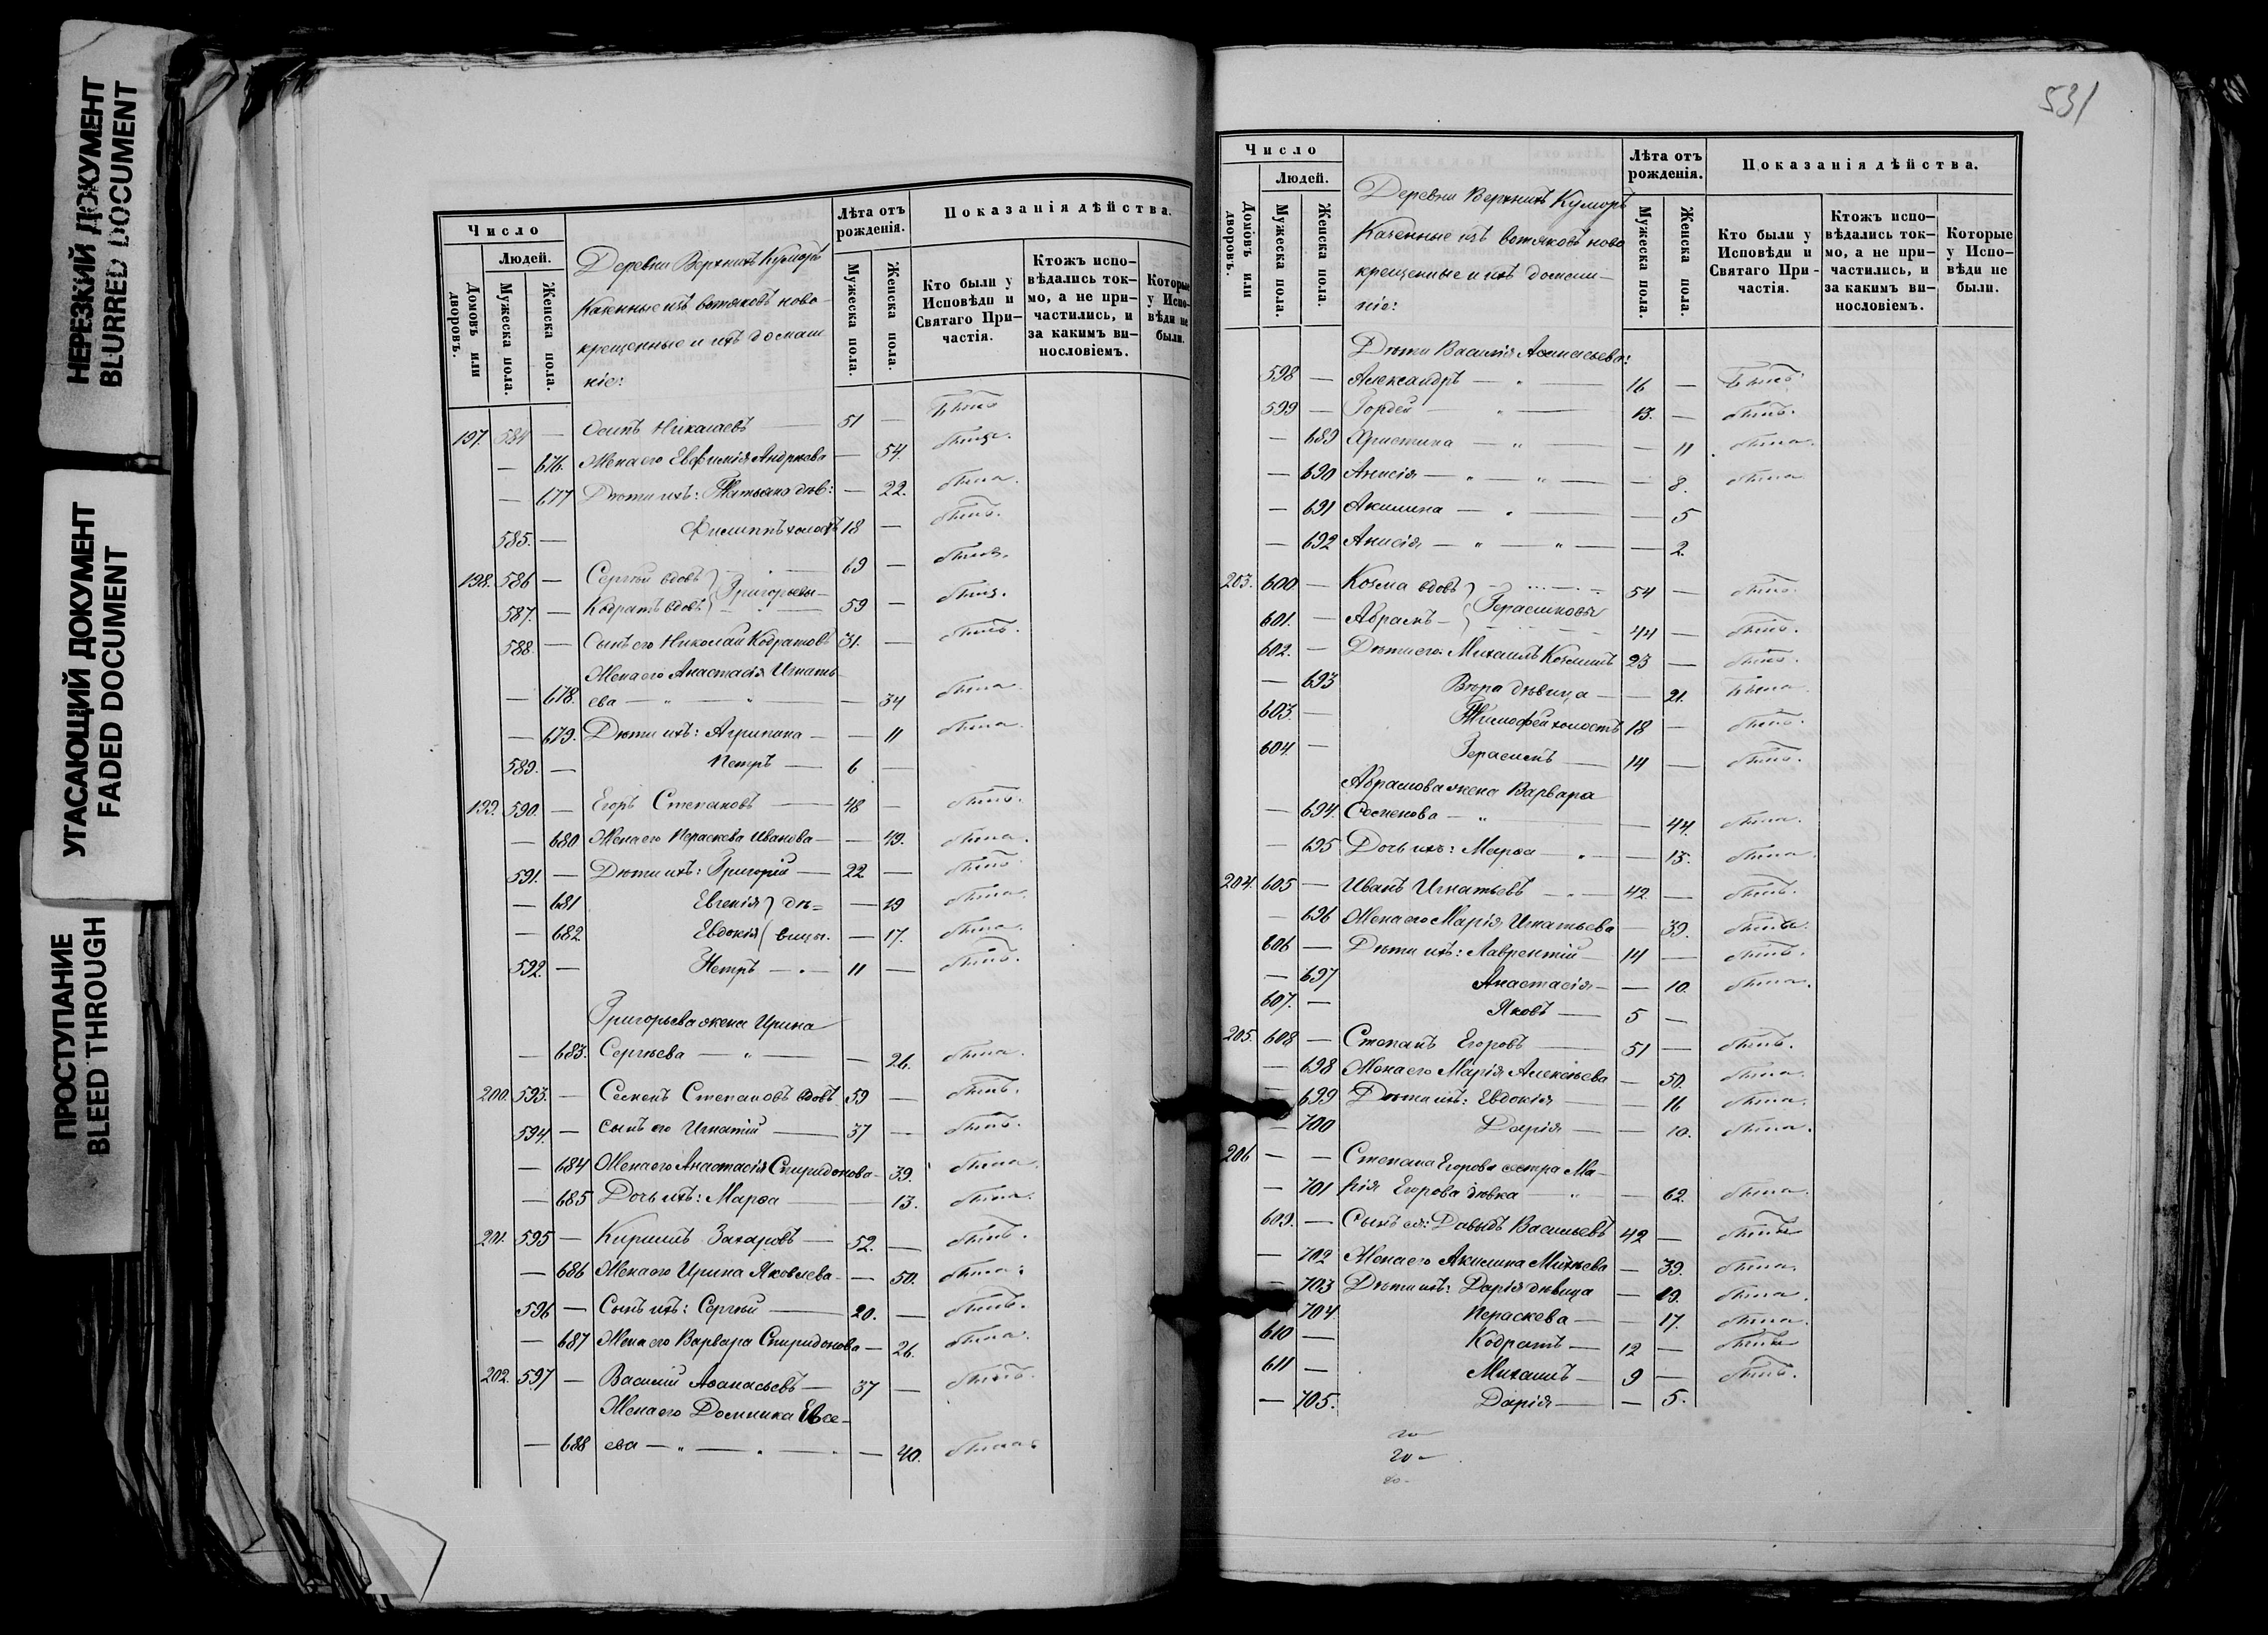 НЕРЕЗКИЙ ДОКУМЕНТ
BLURRED DOCUMENT
УГАСАЮЩИЙ ДОКУМЕНТ
FADED DOCUMENT
ПРОСТУПАНИЕ
BLEED THROUGH
Число
Людей.
Домовъ или дворовъ.
Мужеска пола.
Женска пола.
Деревни Верхнихъ Куморъ
Казенные изъ вотяковъ ново-
крещенные и ихъ домаш
ніе:
Лѣта отъ рожденія.
Мужеска пола.
Женска пола.
Показанія дѣйства.
Кто были у Исповѣди и Святаго При-частія.
Ктожъ испо-вѣдались ток-мо, а не при-частились, и за какимъ ви-нословіемъ.
Которые у Испо-вѣди не были.
197. 584 — Осипъ Николаевъ — 51 — былъ
— 676. Жена его Евфимія Андреева — 54. была.
— 677 Дѣти ихъ: Татьяна дѣв: — 22. была.
585. — Филиппъ холостъ 18 — былъ.
198. 586 — Сергѣй вдовъ } Григорьевы — 69 — былъ.
587. — Кодратъ вдовъ 59 — былъ.
588. — Сынъ его Николай Кодратовъ 31. — былъ.
Жена его Анастасія Игнать
— 678. ева — „ — „ — 34 была
— 679. Дѣти ихъ: Агрипина — — 11 была.
589. — Петръ — 6 —
199. 590. — Егоръ Степановъ — 48 — былъ.
— 680 Жена его Параскева Иванова — — 49. была.
591. — Дѣти ихъ: Григорій — 22 — былъ
— 681 Евгенія } дѣ= — 19 была.
— 682. Евдокія ( вицы. — 17. была.
592. — Петръ — „ — 11 — былъ.
Григорьева жена Ирина
— 683. Сергѣева — „ — — 26. была.
200. 593. — Семенъ Степановъ вдовъ 59 — былъ.
594. — Сынъ его Игнатій — 37 — былъ.
— 684 Жена его Анастасія Спиридонова — 39. была.
— 685 Дочь ихъ: Марѳа — — 13. была.
201. 595 — Кирилъ Захаровъ — 52. — былъ.
— 686 Жена его Ирина Яковлева — — 50. была.
596 — Сынъ ихъ: Сергѣй — 20. — былъ.
— 687 Жена его Варвара Спиридонова — 26. была.
202. 597 — Василій Аѳанасьевъ — 37 — былъ.
Жена его Домника Евсе-
— 688 ева — „ — „ — — 40. была
531
Число
Людей.
Домовъ или дворовъ.
Мужеска пола.
Женска пола.
Деревни Верхнихъ Куморъ
Казенные изъ вотяковъ ново
крещенные и ихъ домаш—
ніе:
Лѣта отъ рожденія.
Мужеска пола.
Женска пола.
Показанія дѣйства.
Кто были у Исповѣди и Святаго При-частія.
Ктожъ испо-вѣдались ток-мо, а не при-частились, и за какимъ ви-нословіемъ.
Которые у Испо-вѣди не были.
Дѣти Василія Аѳанасьева:
598 — Александръ — „ — 16 — былъ.
599 — Гордей — „ — 13. — былъ.
— 689 Христина — „ — — 11 была.
— 690 Анисія — „ — „ — — 8. была
— 691 Акилина — „ — — 5
— 692 Анисія — „ — „ — — 2.
203. 600 — Козма вдовъ } Герасимовы 54 — былъ.
601. — Абрамъ — 44 — былъ.
602. — Дѣти его: Михаилъ Козминъ 23 — былъ.
— 693 Вѣра дѣвица — — 21. была
603. — Тимофей холостъ 18 — былъ.
604. — Герасимъ — 14 — былъ.
Абрамова жена Варвара
— 694. Семенова — „ — — 44. была.
— 695 Дочь ихъ: Марѳа — „ — — 13. была.
204. 605 — Иванъ Игнатьевъ — „ 42. — былъ.
— 696 Жена его Марія Игнатьева — 39. была.
606 — Дѣти ихъ: Лаврентій — 14 — былъ.
— 697 Анастасія — — 10. была.
607. — Яковъ — 5 —
205. 608 — Степанъ Егоровъ — 51 — былъ.
— 698 Жена его Марія Алексѣева — 50. была.
699 Дѣти ихъ: Евдокія — — 16 была.
700 Дарія — — 10. была.
206 — — Степана Егорова сестра Ма—
— 701 рія Егорова дѣвка — „ — 62. была.
609. — Сынъ ея: Давыдъ Васильевъ 42 — былъ
— 702 Жена его Акилина Михѣева — 39. была.
703 Дѣти ихъ: Дарія дѣвица — 19. была.
704. Параскева — — 17. была.
610 — Кодратъ — 12 — былъ
611 — Михаилъ — 9 — былъ.
— 705. Дарія — — 5.
20 —